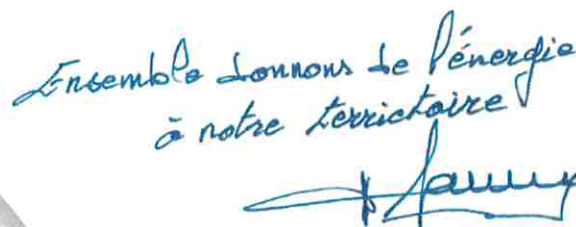 Ensemble donnons de l'énergie
à notre terrictoire